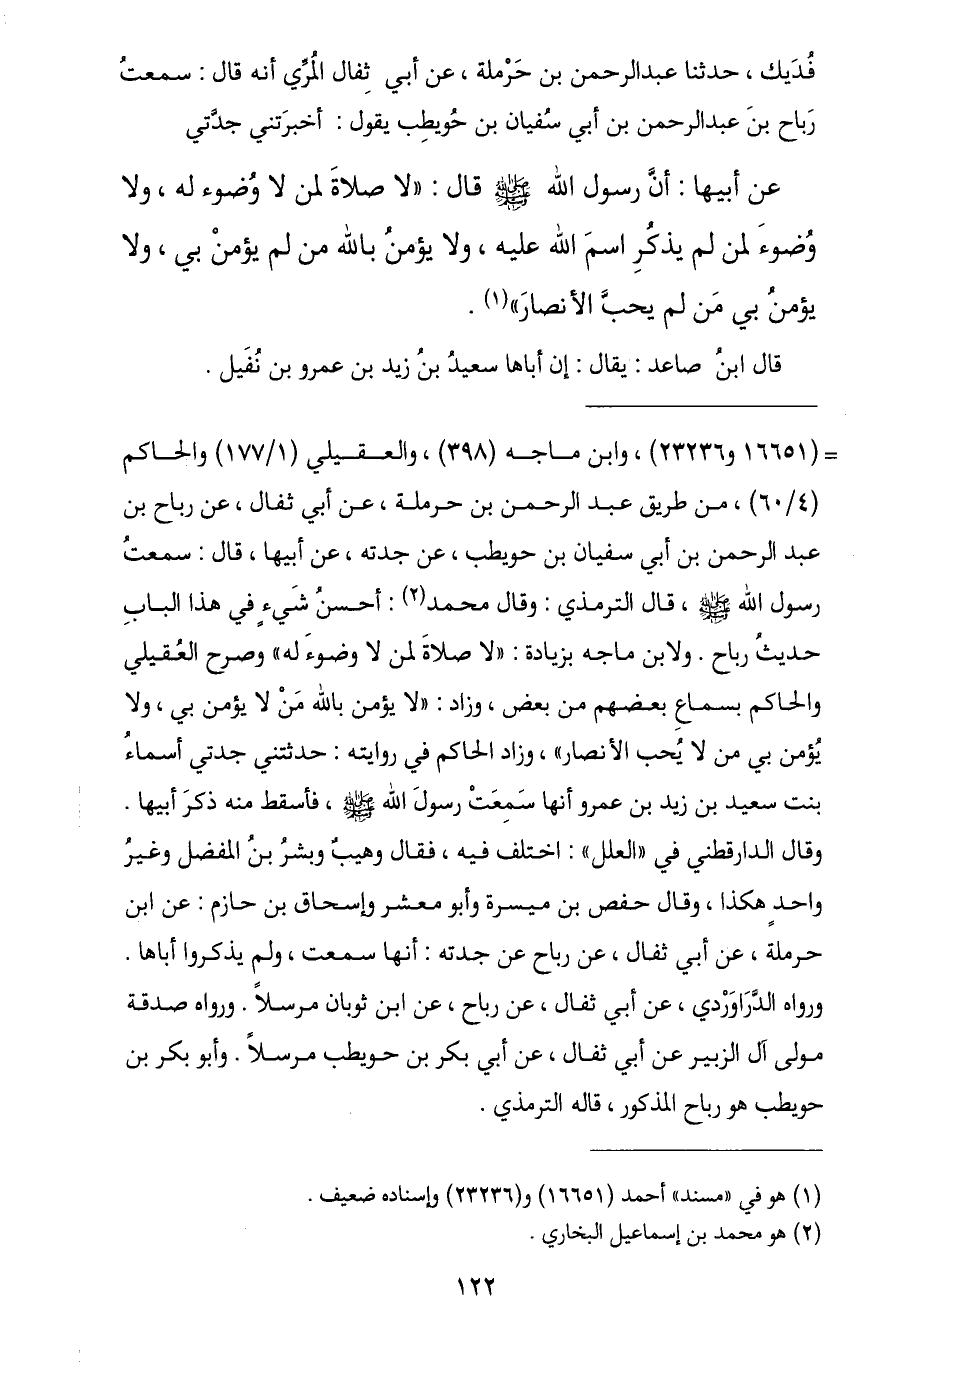 فُدَيك ، حدثنا عبدالرحمن بن حَرْملة ، عن أبي ثِفال المُرِّي أنه قال : سمعتُ
رَباح بنَ عبدالرحمن بن أبي سُفيان بن حُويطِب يقول : أخبرَتني جدَّتي
عن أبيها : أنَّ رسول الله ﷺ قال : «لا صلاةَ لمن لا وُضوء له ، ولا
وُضوءَ لمن لم يذكُرِ اسمَ الله عليه ، ولا يؤمنُ بالله من لم يؤمنْ بي ، ولا
يؤمنُ بي مَن لم يحبَّ الأنصارَ»(١) .
قال ابنُ صاعد : يقال : إن أباها سعيدُ بنُ زيد بن عمرو بن نُفَيل .
= (١٦٦٥١ و٢٣٢٣٦) ، وابن ماجه (٣٩٨) ، والعقيلي (١/١٧٧) والحاكم
(٤/٦٠) ، من طريق عبد الرحمن بن حرملة ، عن أبي ثفال ، عن رباح بن
عبد الرحمن بن أبي سفيان بن حويطب ، عن جدته ، عن أبيها ، قال : سمعتُ
رسول الله ﷺ ، قال الترمذي : وقال محمد(٢) : أحسنُ شَيءٍ في هذا البابِ
حديثُ رباح . ولابن ماجه بزيادة : «لا صلاةَ لمن لا وضوءَ له» وصرح العُقيلي
والحاكم بسماعِ بعضهم من بعض ، وزاد : «لا يؤمن بالله مَنْ لا يؤمن بي ، ولا
يُؤمن بي من لا يُحب الأنصار» ، وزاد الحاكم في روايته : حدثتني جدتي أسماءُ
بنت سعيد بن زيد بن عمرو أنها سَمِعَتْ رسولَ الله ﷺ ، فأسقط منه ذكرَ أبيها .
وقال الدارقطني في «العلل» : اختلف فيه ، فقال وهيبٌ وبشرُ بنُ المفضل وغيرُ
واحدٍ هكذا ، وقال حفص بن ميسرة وأبو معشر وإسحاق بن حازم : عن ابن
حرملة ، عن أبي ثفال ، عن رباح عن جدته : أنها سمعت ، ولم يذكروا أباها .
ورواه الدَّرَاوَرْدي ، عن أبي ثفال ، عن رباح ، عن ابن ثوبان مرسلاً . ورواه صدقة
مولى آل الزبير عن أبي ثفال ، عن أبي بكر بن حويطب مرسلاً . وأبو بكر بن
حويطب هو رباح المذكور ، قاله الترمذي .
(١) هو في «مسند» أحمد (١٦٦٥١) و(٢٣٢٣٦) وإسناده ضعيف .
(٢) هو محمد بن إسماعيل البخاري .
١٢٢